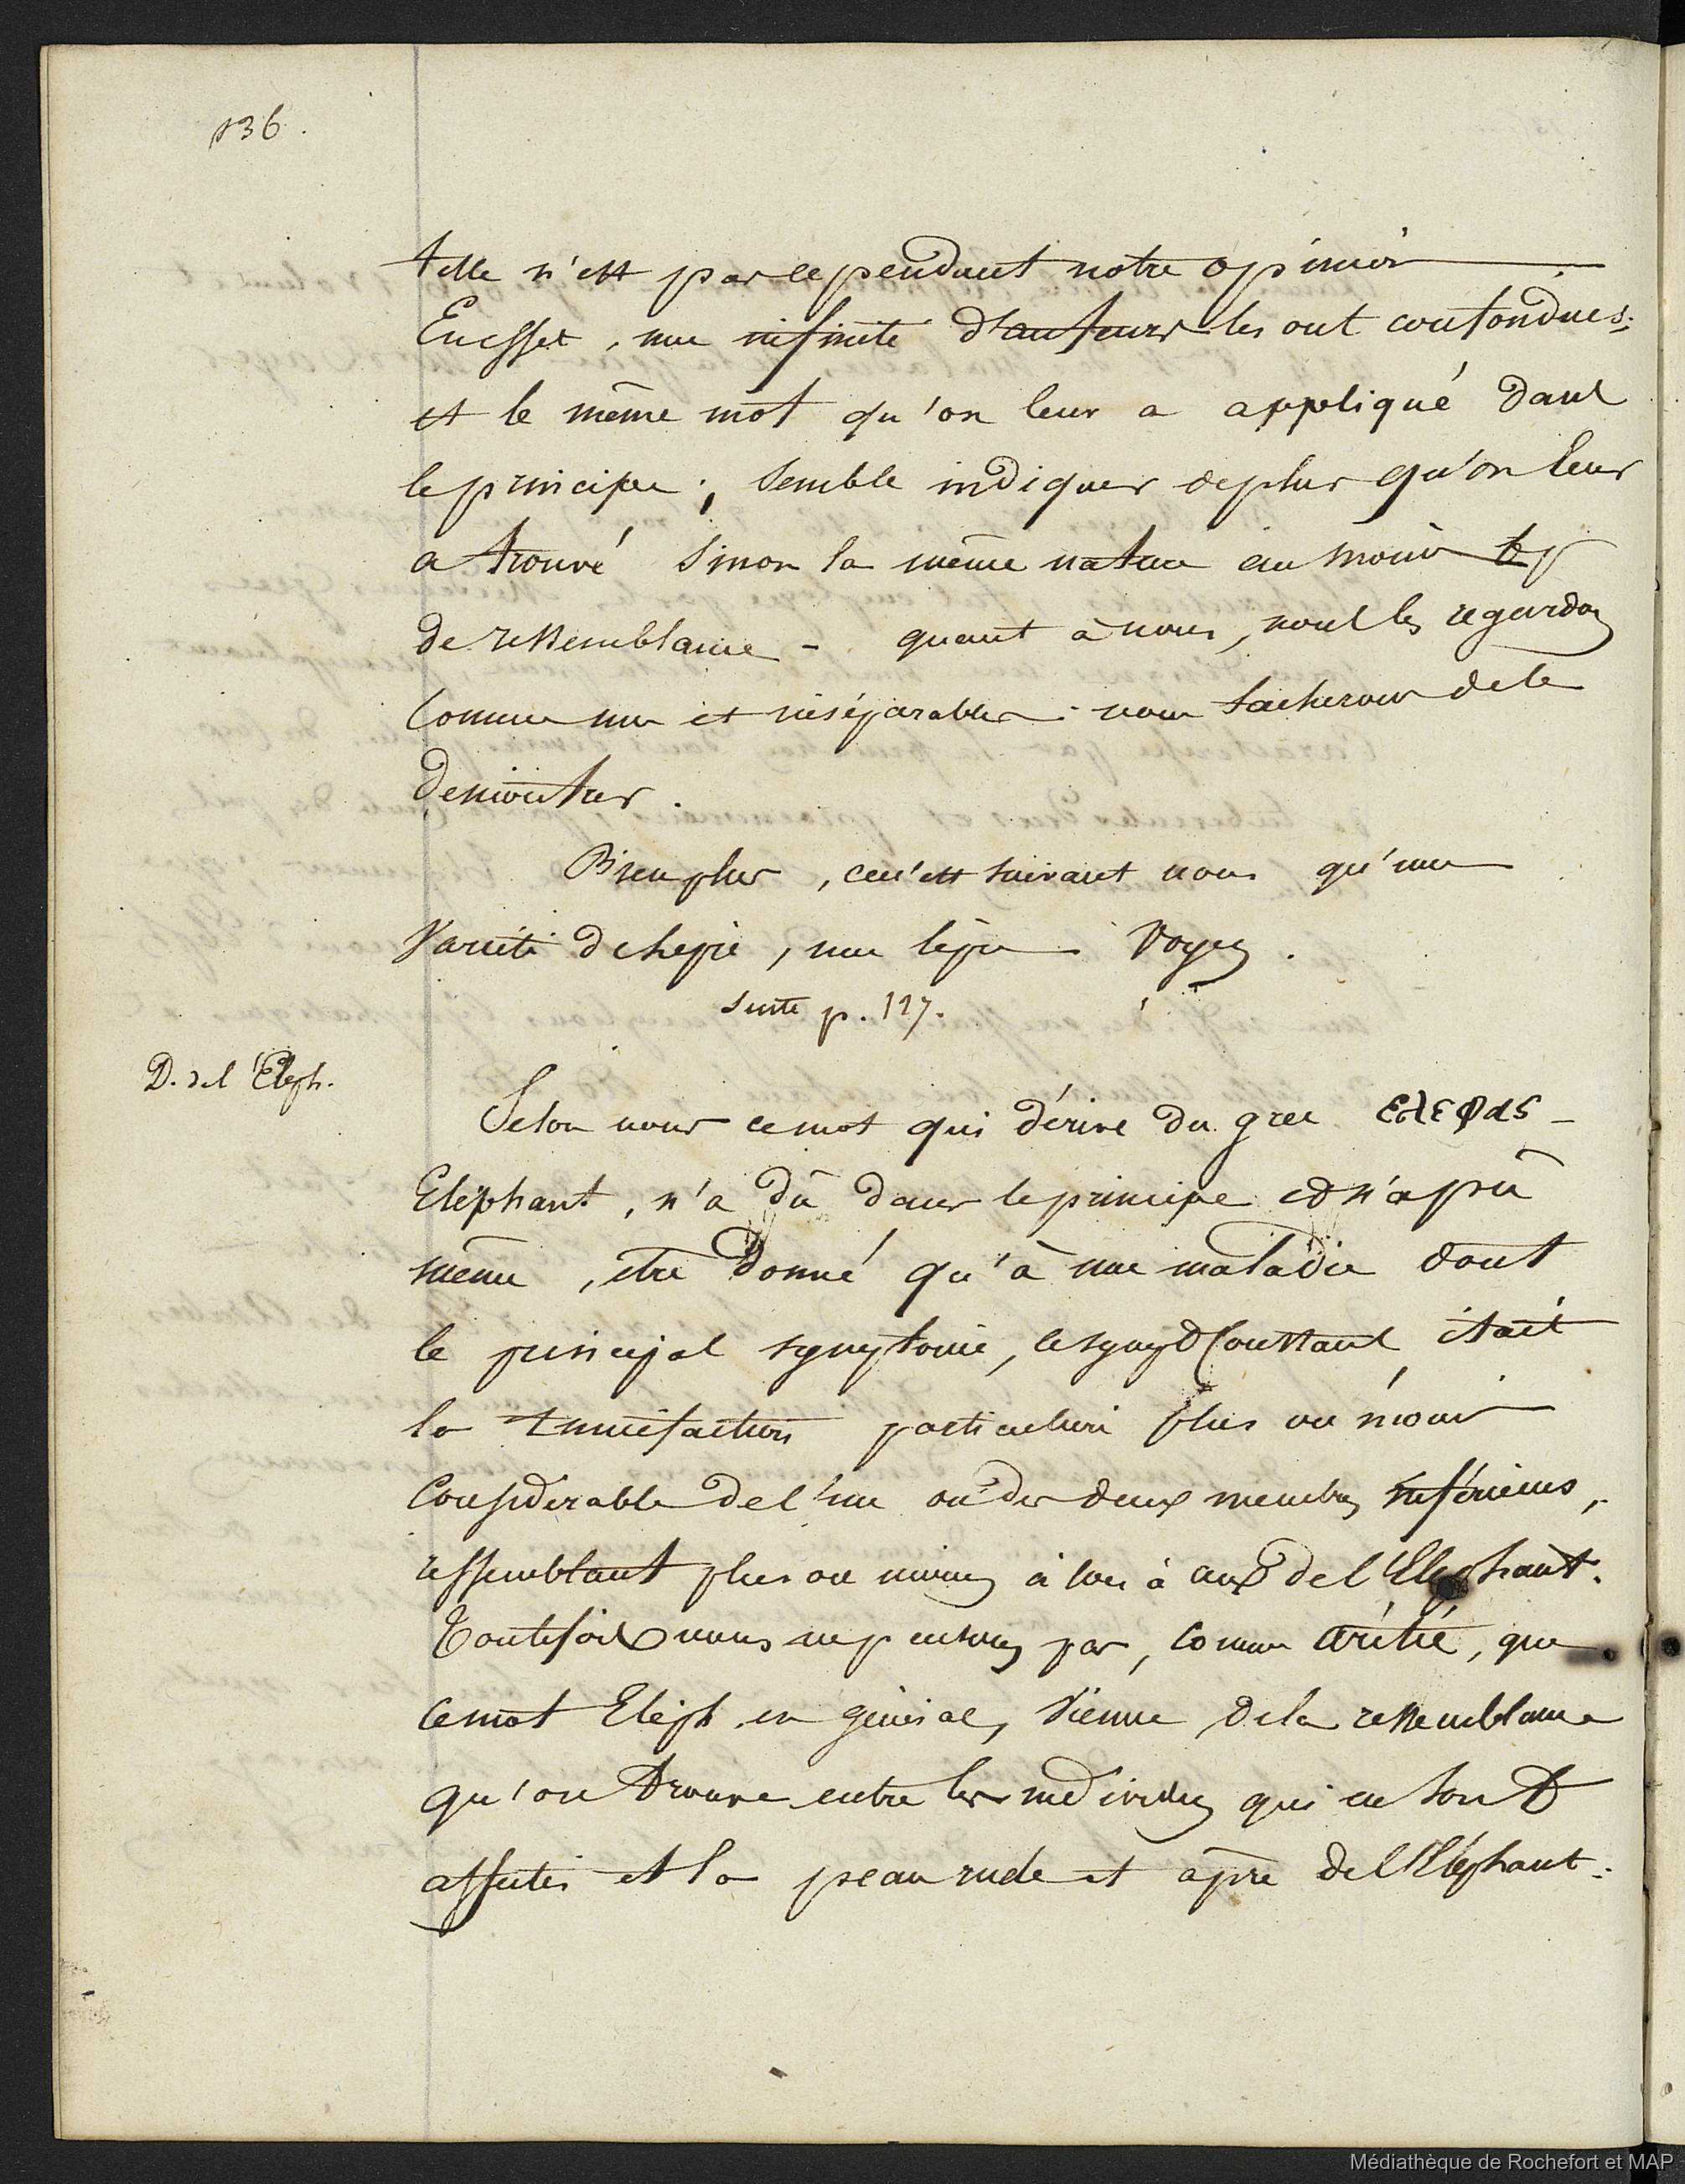 136.
telle n'est pas cependant notre opinion
En effet, une infinité d'auteurs les ont confondues;
et le même mot qu'on leur a appliqué dans
le principe, semble indiquer deplus qu'on leur
a trouvé sinon la même nature au moins bp
de ressemblance - quant à nous, nous les regardons
comme une et inséparables. nous tacherons de le
demontrer.
Bien plus, ce n'est suivant nous qu'une
variété de lepre, une lèpre Voyez.
suite p. 127.
D. de l'Eleph.
Selon nous ce mot qui dérive du grec ελεφας -
Eléphant, n'a dû dans le principe et n'a pû
même, être donné qu'à une maladie dont
le principal symptome, le sympt constant était
la tumefaction particulière plus ou moins
considerable de l'un ou des deux membres inférieurs,
ressemblant plus ou moins à ceux de l'Elephant.
Toutefois nous ne pensons pas, comme Arétée, que
ce mot Eléph. en général, vienne de la ressemblance
qu'on trouve entre les individus qui en sont
affectés et la peau rude et apre de l'Eléphant.
Médiathèque de Rochefort et MAP